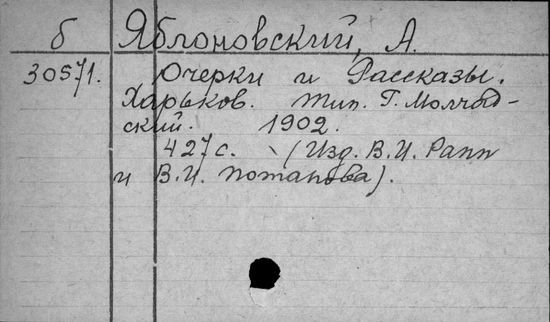 б Яблоновский, А.
30571. Очерки и Рассказы.
Харьков. Тип. Г. Молчад-
ский. 1902.
427с. (Изд. В.И. Рапп
и В.И. Потапова).